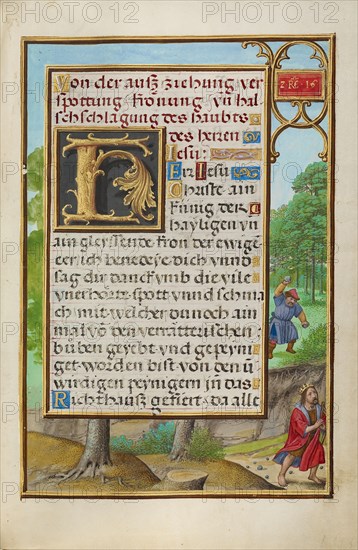 Von der auß ziehung ver
spottung kronung vn̄ hal
schschlagung des haubts
des herren
Iesu:
Er Iesu
Christe ain
künig der
hayligen vn
ain gleyssende kron der ewige
er ich benedeye dich vnnd
sag dir danck vmb die vile
vnerhörte spott vnnd schma
ch mit welcher du noch ain
mal vō den verrätterischen
büben geycht vnd gepeyni
get worden bist von den v̄
wirdigen peynigern in das
Richthauß gefiert da alle
2 RE 16